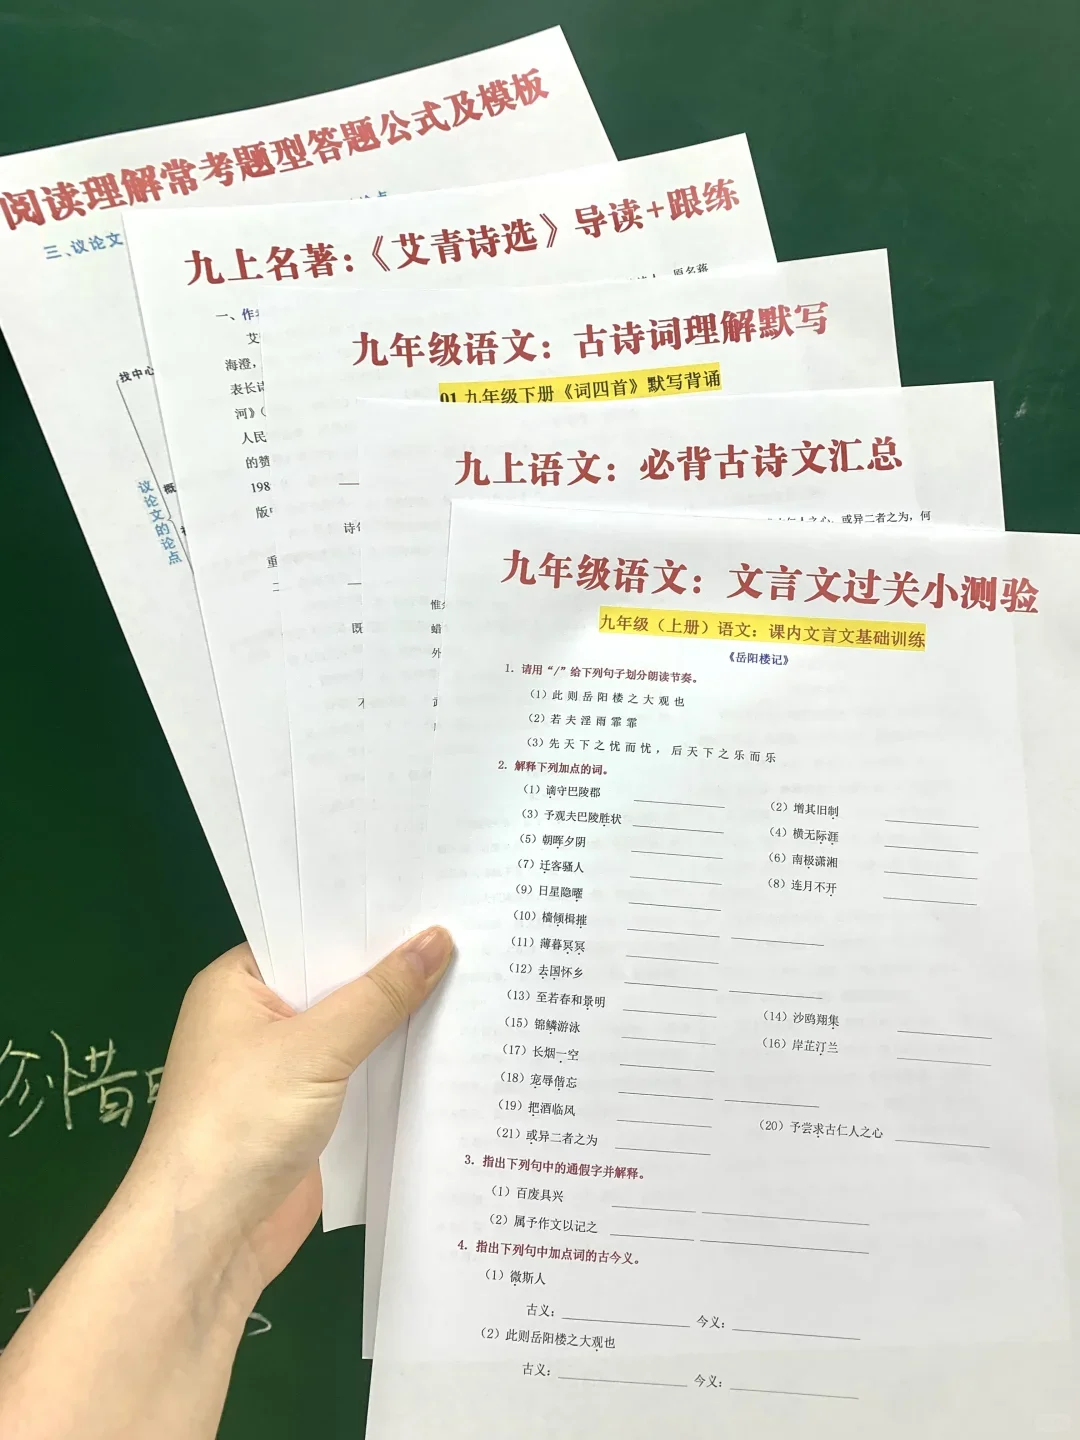 阅读理解常考题型答题公式及模板
三、议论文
找中心
概
议论文的论点
九上名著：《艾青诗选》导读+跟练
原名蒋
一、作者
艾
海澄，
表长诗
河》（
人民
的赞
198
版
重
二
九年级语文：古诗词理解默写
01 九年级下册《词四首》默写背诵
诗
既
九上语文：必背古诗文汇总
仁人之心，或异二者之为，何
惟
外
九年级语文：文言文过关小测验
九年级（上册）语文：课内文言文基础训练
《岳阳楼记》
1. 请用“/”给下列句子划分朗读节奏。
（1）此则岳阳楼之大观也
（2）若夫淫雨霏霏
（3）先天下之忧而忧，后天下之乐而乐
2. 解释下列加点的词。
（1）谪守巴陵郡 （2）增其旧制
（3）予观夫巴陵胜状 （4）横无际涯
（5）朝晖夕阴 （6）南极潇湘
（7）迁客骚人 （8）连月不开
（9）日星隐曜
（10）樯倾楫摧
（11）薄暮冥冥
（12）去国怀乡
（13）至若春和景明 （14）沙鸥翔集
（15）锦鳞游泳 （16）岸芷汀兰
（17）长烟一空
（18）宠辱偕忘
（19）把酒临风 （20）予尝求古仁人之心
（21）或异二者之为
3. 指出下列句中的通假字并解释。
（1）百废具兴
（2）属予作文以记之
4. 指出下列句中加点词的古今义。
（1）微斯人
古义： 今义：
（2）此则岳阳楼之大观也
古义： 今义：
珍惜